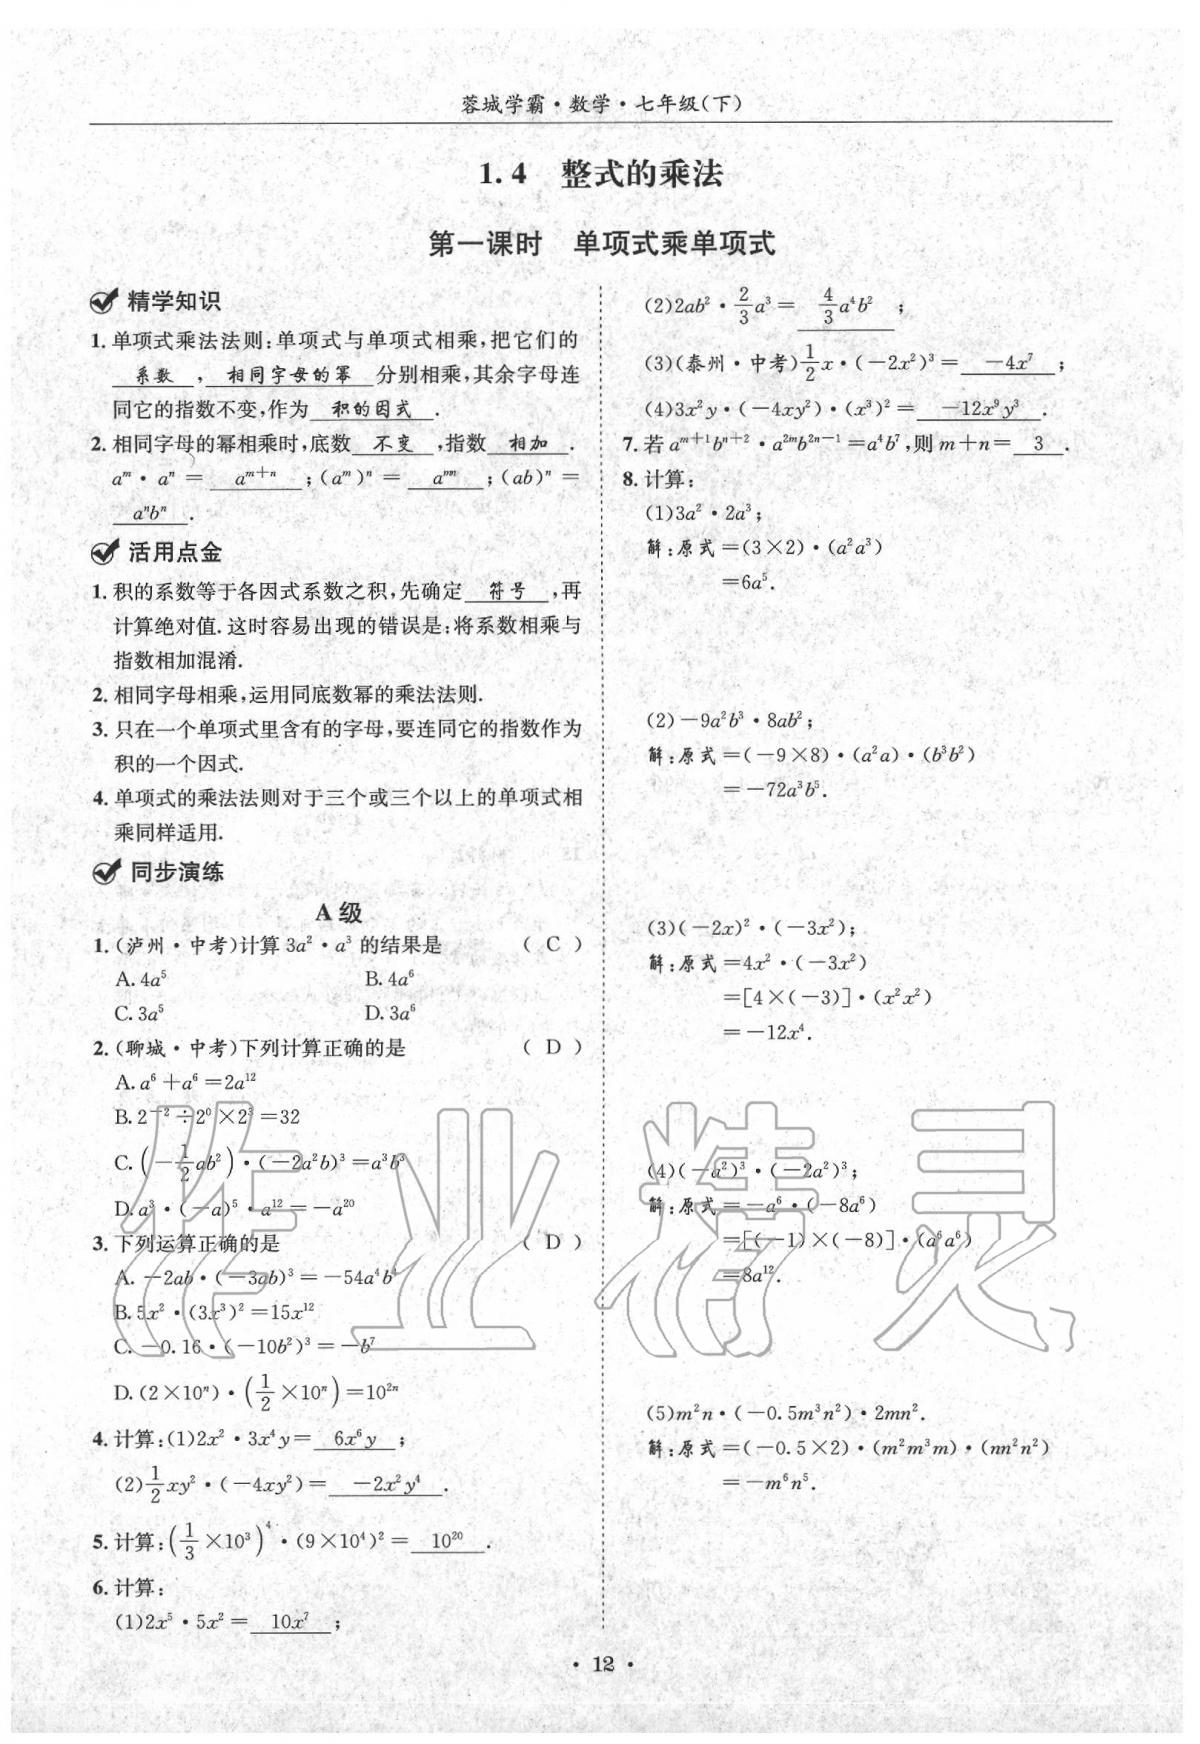 蓉城学霸·数学·七年级(下)
1.4 整式的乘法
第一课时 单项式乘单项式
精学知识
1. 单项式乘法法则:单项式与单项式相乘,把它们的
系数 , 相同字母的幂 分别相乘,其余字母连
同它的指数不变,作为 积的因式 .
2. 相同字母的幂相乘时,底数 不变 ,指数 相加 .
aᵐ·aⁿ= aᵐ⁺ⁿ ;(aᵐ)ⁿ= aᵐⁿ ;(ab)ⁿ=
aⁿbⁿ .
活用点金
1. 积的系数等于各因式系数之积,先确定 符号 ,再
计算绝对值.这时容易出现的错误是:将系数相乘与
指数相加混淆.
2. 相同字母相乘,运用同底数幂的乘法法则.
3. 只在一个单项式里含有的字母,要连同它的指数作为
积的一个因式.
4. 单项式的乘法法则对于三个或三个以上的单项式相
乘同样适用.
同步演练
A级
1. (泸州·中考)计算 3a²·a³ 的结果是 ( C )
A. 4a⁵ B. 4a⁶
C. 3a⁵ D. 3a⁶
2. (聊城·中考)下列计算正确的是 ( D )
A. a⁶+a⁶=2a¹²
B. 2⁻²÷2⁰×2³=32
C. (-1/2ab²)·(-2a²b)³=a³b³
D. a³·(-a)⁵·a¹²=-a²⁰
3. 下列运算正确的是 ( D )
A. -2ab·(-3ab)³=-54a⁴b⁴
B. 5x²·(3x³)²=15x¹²
C. -0.16·(-10b²)³=-b⁷
D. (2×10ⁿ)·(1/2×10ⁿ)=10²ⁿ
4. 计算:(1)2x²·3x⁴y= 6x⁶y ;
(2)1/2xy²·(-4xy²)= -2x²y⁴ .
5. 计算:(1/3×10³)⁴·(9×10⁴)²= 10²⁰ .
6. 计算:
(1)2x⁵·5x²= 10x⁷ ;
(2)2ab²·2/3a³= 4/3a⁴b² ;
(3)(泰州·中考)1/2x·(-2x²)³= -4x⁷ ;
(4)3x²y·(-4xy²)·(x³)²= -12x⁹y³ .
7. 若 aᵐ⁺¹bⁿ⁺²·a²ᵐb²ⁿ⁻¹=a⁴b⁷,则 m+n= 3 .
8. 计算:
(1)3a²·2a³;
解:原式=(3×2)·(a²a³)
=6a⁵.
(2)-9a²b³·8ab²;
解:原式=(-9×8)·(a²a)·(b³b²)
=-72a³b⁵.
(3)(-2x)²·(-3x²);
解:原式=4x²·(-3x²)
=[4×(-3)]·(x²x²)
=-12x⁴.
(4)(-a²)³·(-2a²)³;
解:原式=-a⁶·(-8a⁶)
=[(-1)×(-8)]·(a⁶a⁶)
=8a¹².
(5)m²n·(-0.5m³n²)·2mn².
解:原式=(-0.5×2)·(m²m³m)·(nn²n²)
=-m⁶n⁵.
作业精灵
·12·